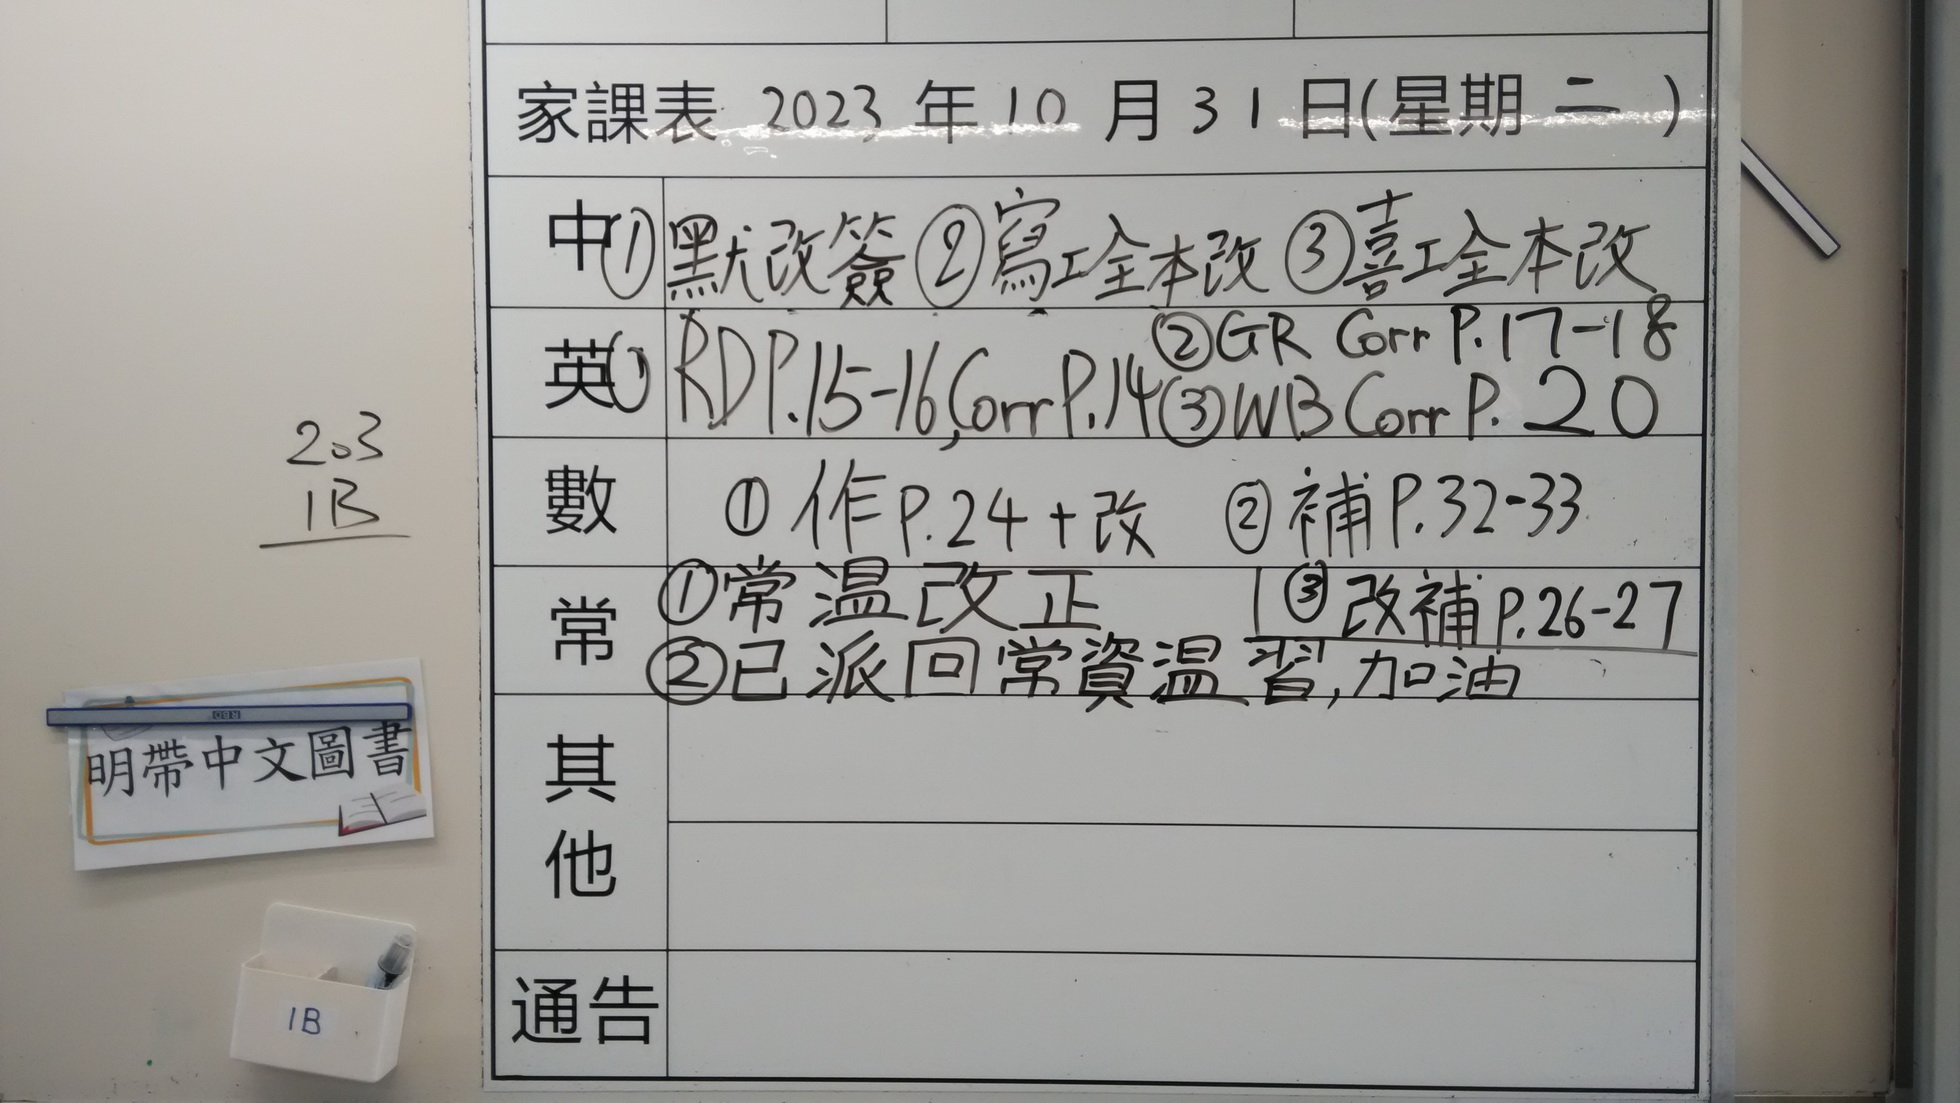 家課表 2023 年 10 月 31 日(星期 二 )
中 ① 默改簽 ② 寫工全本改 ③ 喜工全本改
英 ① RD P.15-16, Corr P.14 ② GR Corr P.17-18
③ WB Corr P. 20
數 ① 作 P.24 + 改 ② 補 P.32-33
常 ① 常溫改正 ③ 改補 P.26-27
② 已派回常資溫習, 加油
其他
通告
203
1B
明帶中文圖書
1B